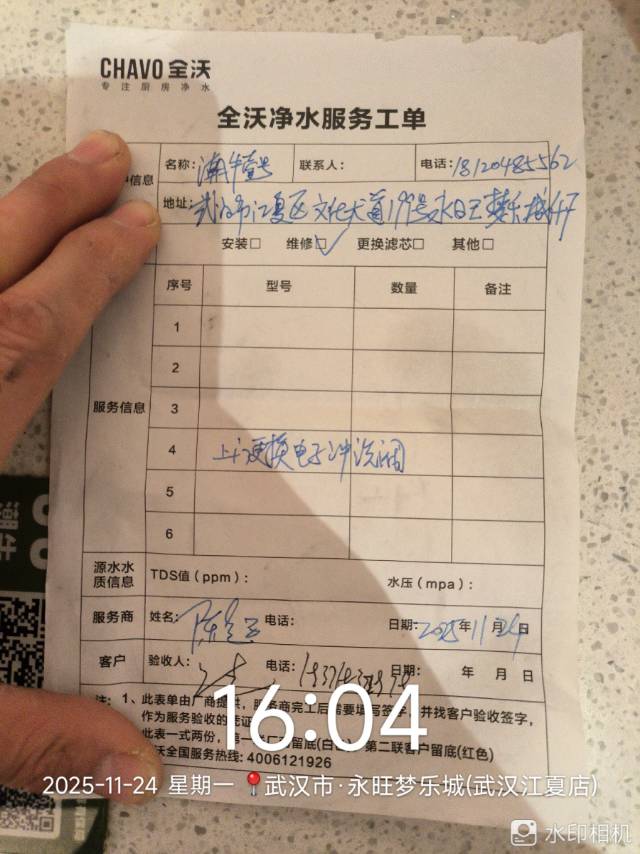 CHAVO 全沃
专注厨房净水
全沃净水服务工单
信息 名称： 潮牛壹号 联系人： 电话：18120485562
地址：武汉市江夏区文化大道1号永旺梦乐城
安装□ 维修☑ 更换滤芯□ 其他□
序号 型号 数量 备注
1
2
服务信息 3
4 上门更换电子冲洗阀
5
6
源水水质信息 TDS值（ppm）： 水压（mpa）：
服务商 姓名： 电话： 日期：2025年11月24日
客户 验收人： 电话： 日期： 年 月 日
注：1、此表单由厂商提供，服务商完工后需要填写签字，并找客户验收签字，
作为服务验收的凭证
此表一式两份，第一 厂 留底(白 第二联客户留底(红色)
沃全国服务热线：4006121926
潮牛
16:04
2025-11-24 星期一 武汉市·永旺梦乐城(武汉江夏店)
水印相机